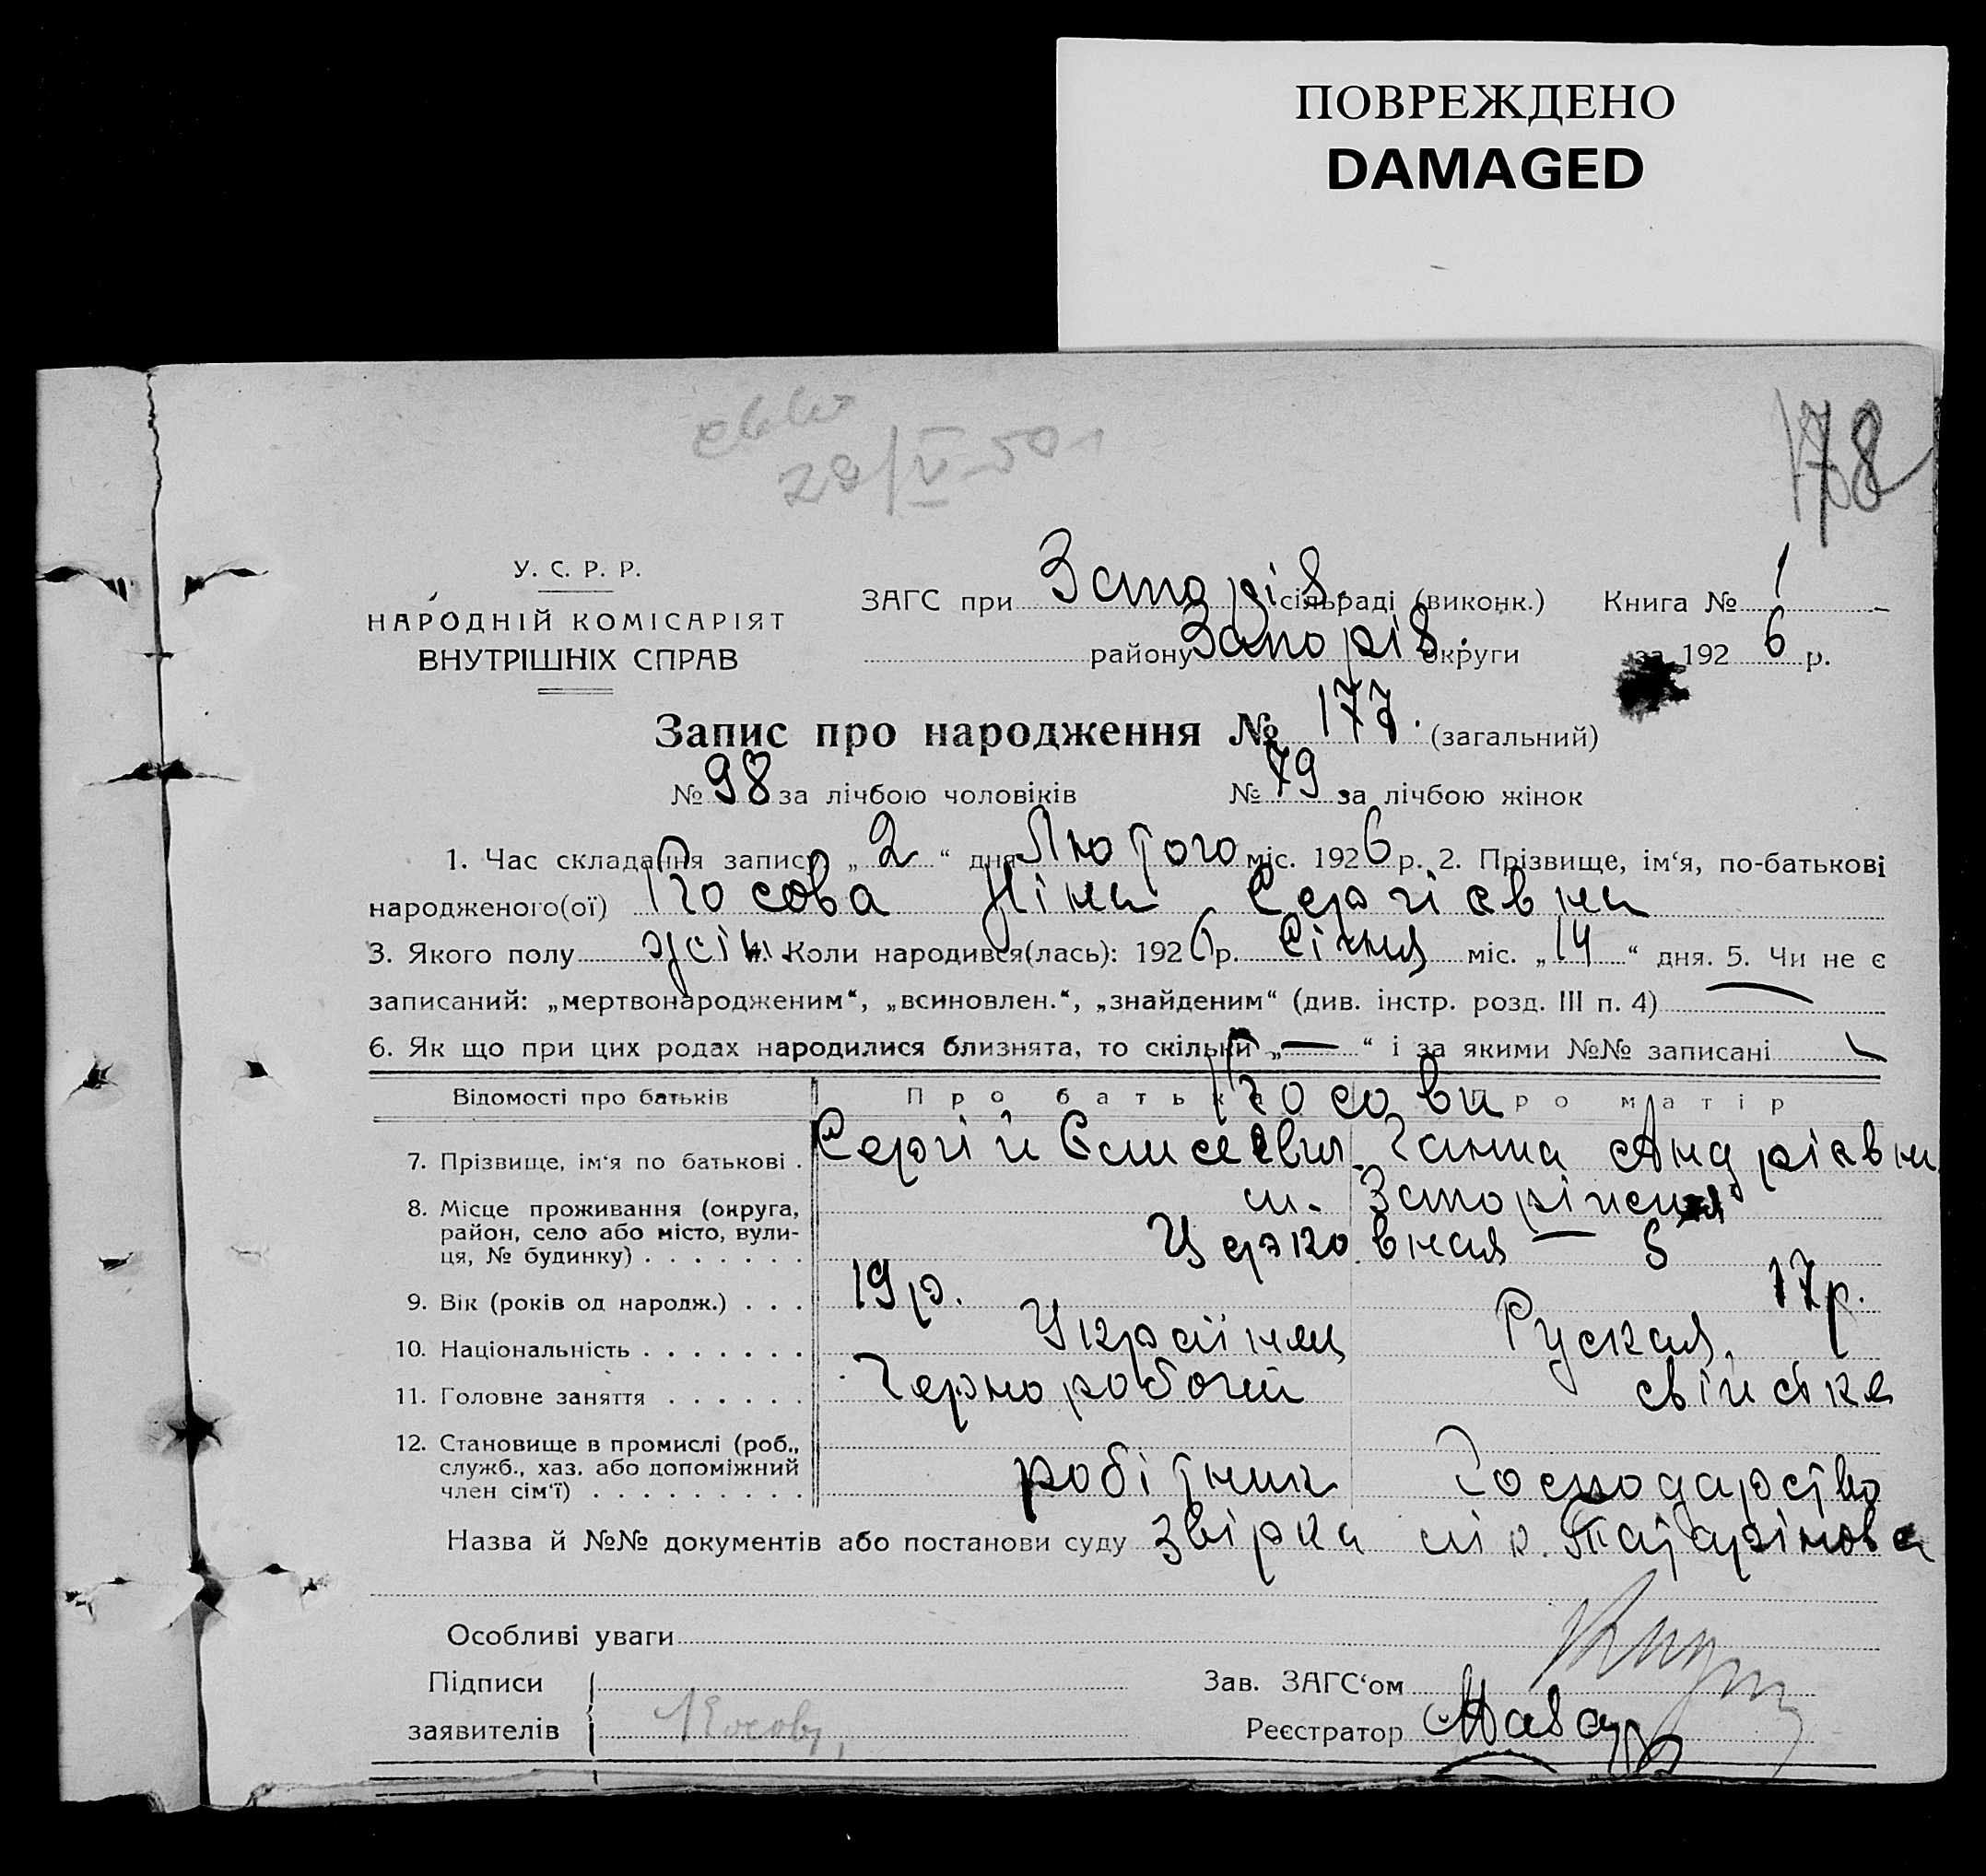 ПОВРЕЖДЕНО
DAMAGED
29/V-50
178
У. С. Р. Р.
НАРОДНІЙ КОМІСАРІЯТ
ВНУТРІШНІХ СПРАВ
ЗАГС при Запоріз. сільраді (виконк.) Книга № 1
району Запоріз. округи за 1926 р.
Запис про народження № 177. (загальний)
№ 98 за лічбою чоловіків № 79 за лічбою жінок
1. Час складання запису „2“ дня Лютого міс. 1926 р. 2. Прізвище, ім‘я, по-батькові
народженого(ої) Косова Ніна Сергієвна
3. Якого полу жін. 4. Коли народився(лась): 1926 р. Січня міс. „14“ дня. 5. Чи не є
записаний: „мертвонародженим“, „всиновлен.“, „знайденим“ (див. інстр. розд. III п. 4) —
6. Як що при цих родах народилися близнята, то скільки „—“ і за якими №№ записані —
Відомості про батьків Про батька Про матір
Косови
7. Прізвище, ім‘я по батькові . Сергій Ганна Андрієвна
8. Місце проживання (округа, район, село або місто, вулиця, № будинку) . . . . . . . м. Запоріжжя
Церковная — 5
9. Вік (років од народж.) . . . 19 р. 17 р.
10. Національність . . . . . . . Українец Руская
11. Головне заняття . . . . . . Чернороботий свійска
12. Становище в промислі (роб.,
служб., хаз. або допоміжний
член сім‘ї) . . . . . . . . . робітник Господарство
Назва й №№ документів або постанови суду звірка лік. Татарінова
Особливі уваги
Підписи Зав. ЗАГС‘ом
заявителів Косов Реєстратор